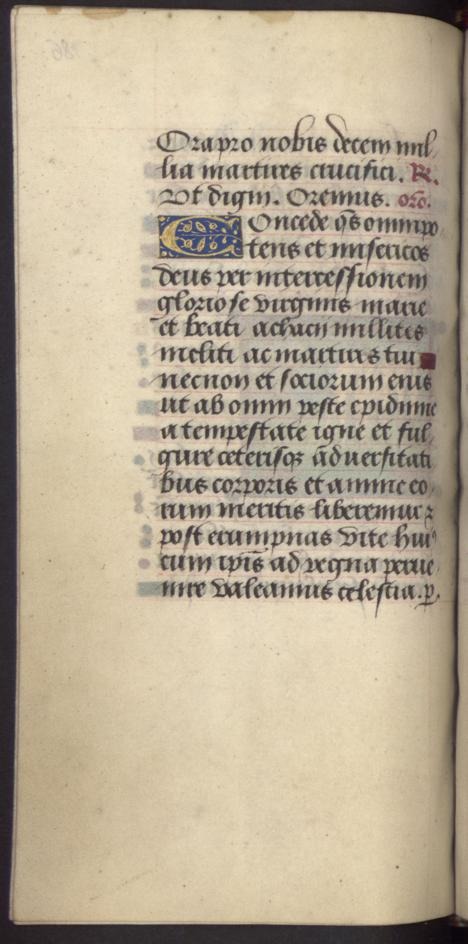 Ora pro nobis decem mil
lia martires crucifixi. R.
Vt digni. Oremus. oro.
Concede qs omnipo
tens et misericors
deus per intercessionem
gloriose virginis marie
et beati achacii militis
incliti ac martiris tui
necnon et sociorum eius
ut ab omni peste epidimie
a tempestate igne et ful
gure ceterisqz aduersitati
bus corporis et anime eo
rum meritis liberemur z
post erumpnas vite hui9
cum ipis ad regna perue
nire valeamus celestia. p.